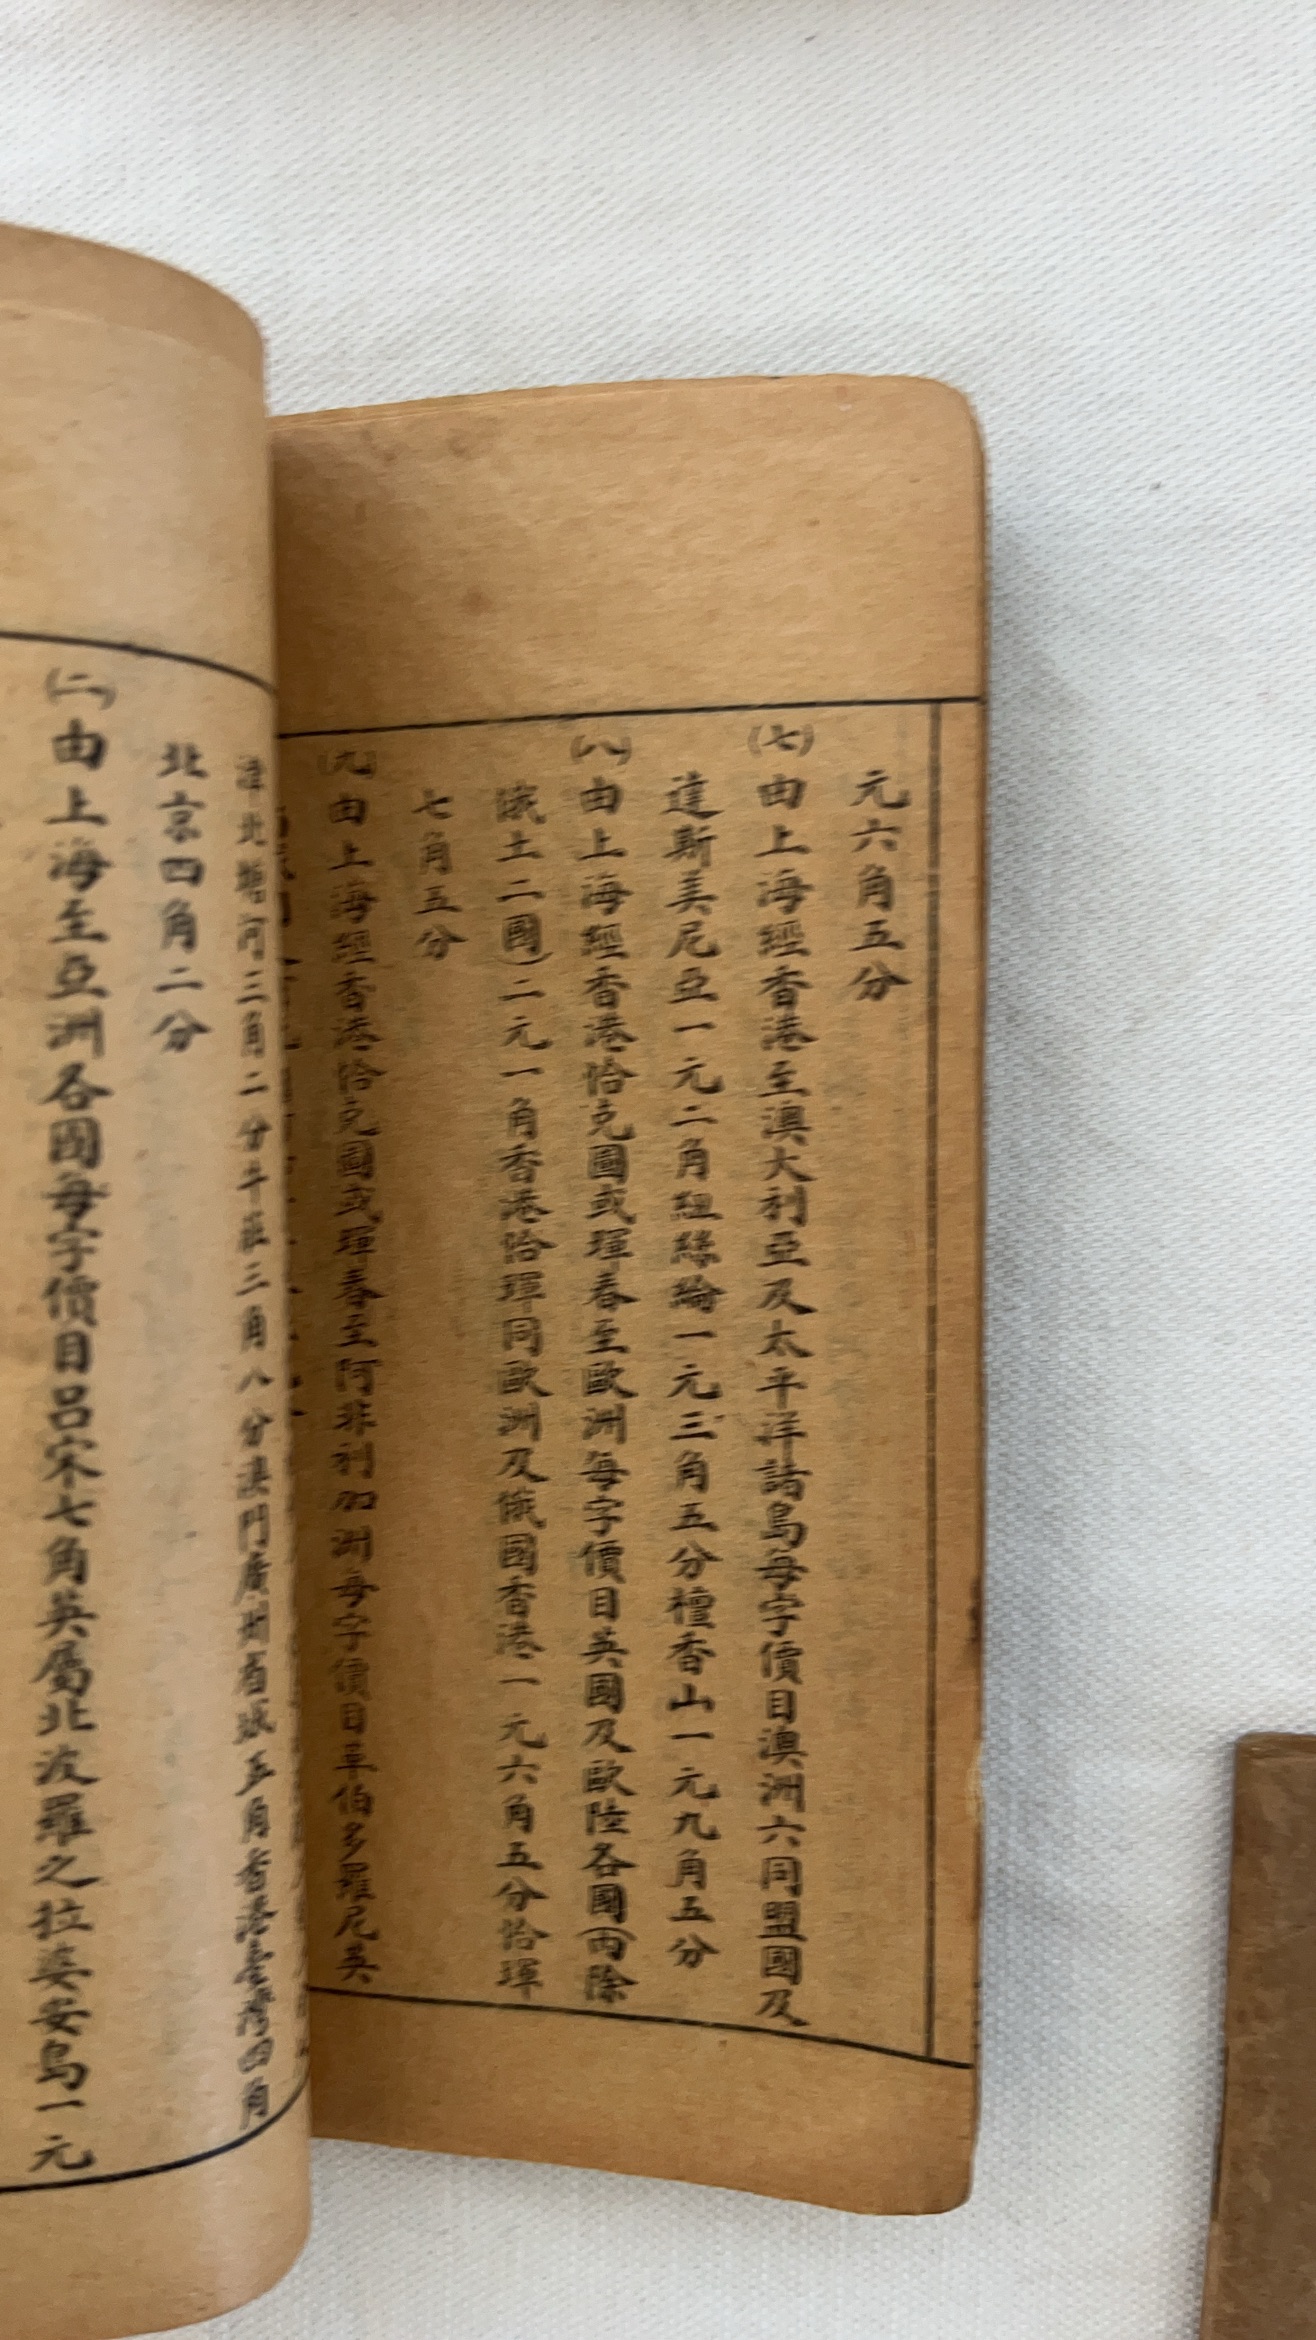 元六角五分
(七)由上海經香港至澳大利亞及太平洋諸島每字價目澳洲六同盟國及
達斯美尼亞一元二角紐絲綸一元三角五分檀香山一元九角五分
(八)由上海經香港恰克圖或琿春至歐洲每字價目英國及歐陸各國(內除
俄土二國)二元一角香港恰琿同歐洲及俄國香港一元六角五分恰琿
七角五分
(九)由上海經香港恰克圖或琿春至阿非利加洲每字價目卑伯多羅尼英
津北塘河三角二分牛莊三角八分澳門廣州省城五角香港臺灣四角
北京四角二分
(二)由上海至亞洲各國每字價目呂宋七角英屬北波羅之拉婆安島一元